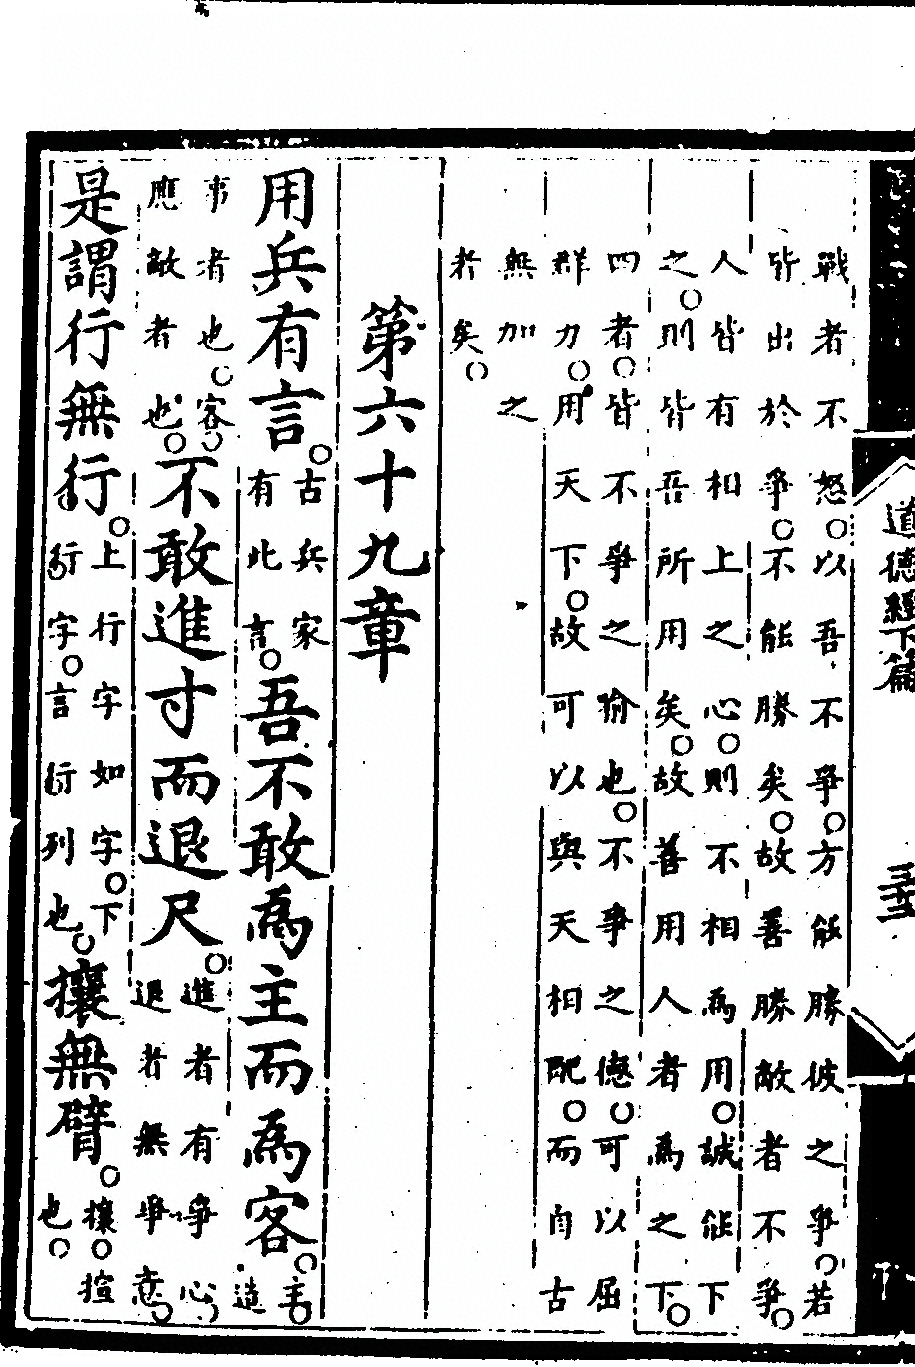 道德經下篇
戰者不怒。以吾不爭。方能勝彼之爭。若
皆出於爭。不能勝矣。故善勝敵者不爭。
人皆有相上之心。則不相為用。誠能下
之。則皆吾所用矣。故善用人者為之下。
四者。皆不爭之喻也。不爭之德。可以屈
群力。用天下。故可以與天相配。而自古
無加之
者矣。
第六十九章
用兵有言。古兵家有此言。吾不敢為主而為客。主。造
事者也。客。應敵者也。不敢進寸而退尺。進者有爭心。退者無爭意。
是謂行無行。上行字如字。下行字。言行列也。攘無臂。攘。揎也。